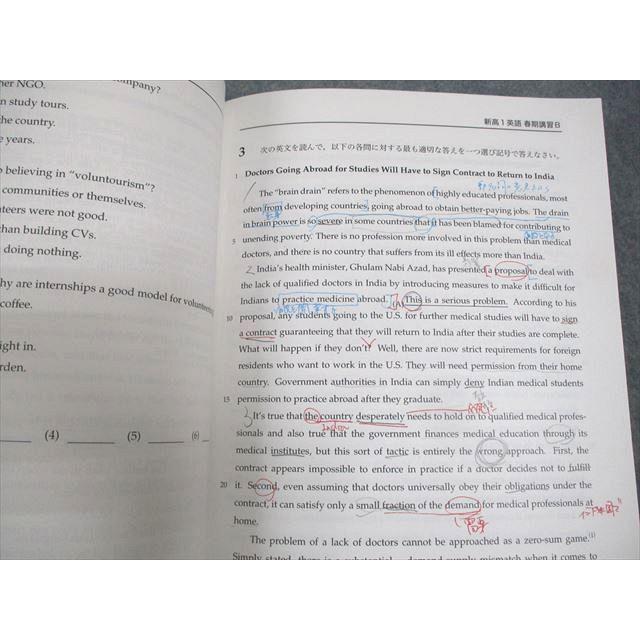 her NGO.
mpany?
n study tours.
he country.
e years.
believing in "voluntourism"?
communities or themselves.
teers were not good.
han building CVs.
doing nothing.
hy are internships a good model for
coffee.
ight in.
rden.
(4) (5) (6)
新高1英語 春期講習B
3 次の英文を読んで，以下の各問に対する最も適切な答えを一つ選び記号で答えなさい。
1 Doctors Going Abroad for Studies Will Have to Sign Contract to Return to India
The "brain drain" refers to the phenomenon of highly educated professionals, most
often from developing countries, going abroad to obtain better-paying jobs. The drain
in brain power is so severe in some countries that it has been blamed for contributing to
5 unending poverty. There is no profession more involved in this problem than medical
doctors, and there is no country that suffers from its ill effects more than India.
2 India's health minister, Ghulam Nabi Azad, has presented a proposal to deal with
the lack of qualified doctors in India by introducing measures to make it difficult for
Indians to practice medicine abroad. (A) This is a serious problem. According to his
10 proposal, any students going to the U.S. for further medical studies will have to sign
a contract guaranteeing that they will return to India after their studies are complete.
What will happen if they don't? Well, there are now strict requirements for foreign
residents who want to work in the U.S. They will need permission from their home
country. Government authorities in India can simply deny Indian medical students
15 permission to practice abroad after they graduate.
3 It's true that the country desperately needs to hold on to qualified medical profes-
Indian
sionals and also true that the government finances medical education through its
medical institutes, but this sort of tactic is entirely the wrong approach. First, the
contract appears impossible to enforce in practice if a doctor decides not to fulfill
20 it. Second, even assuming that doctors universally obey their obligations under the
contract, it can satisfy only a small fraction of the demand for medical professionals at
home.
需要
The problem of a lack of doctors cannot be approached as a zero-sum game.(1)
Simply stated, there is a substantial demand-supply mismatch when it comes to